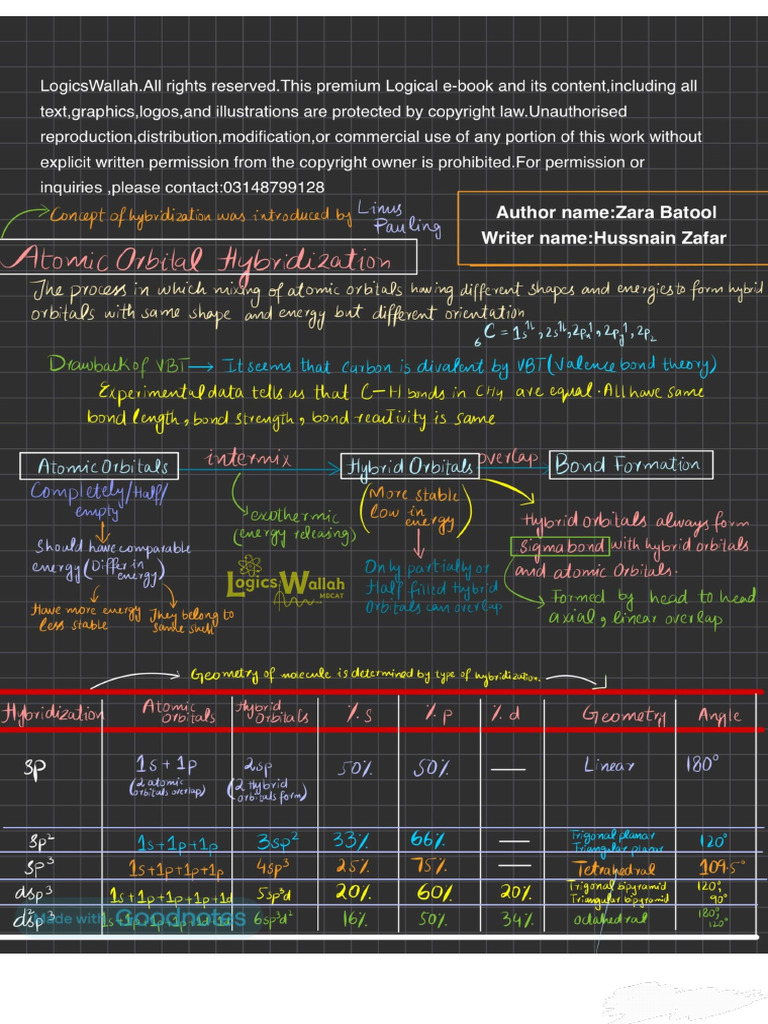 LogicsWallah.All rights reserved.This premium Logical e-book and its content,including all
text,graphics,logos,and illustrations are protected by copyright law.Unauthorised
reproduction,distribution,modification,or commercial use of any portion of this work without
explicit written permission from the copyright owner is prohibited.For permission or
inquiries ,please contact:03148799128
Concept of hybridization was introduced by Linus
Pauling
Author name:Zara Batool
Writer name:Hussnain Zafar
Atomic Orbital Hybridization
The process in which mixing of atomic orbitals having different shapes and energies to form hybrid
orbitals with same shape and energy but different orientation
₆C = 1s¹¹, 2s¹¹, 2px¹, 2py¹, 2pz
Drawback of VBT → It seems that carbon is divalent by VBT (Valence bond theory)
Experimental data tells us that C-H bonds in CH4 are equal. All have same
bond length, bond strength, bond reactivity is same
Atomic Orbitals
intermix
Hybrid Orbitals
overlap
Bond Formation
Completely/Half/
empty
Should have comparable
energy (Differ in
energy)
Have more energy
less stable
They belong to
same shell
exothermic
(energy releasing)
(More stable
low in
energy)
Only partially or
Half filled Hybrid
Orbitals can overlap
Hybrid orbitals always form
sigma bond with hybrid orbitals
and atomic Orbitals.
Formed by head to head
axial, linear overlap
LogicsWallah
MDCAT
Geometry of molecule is determined by type of hybridization.
Hybridization Atomic Orbitals Hybrid Orbitals %s %p %d Geometry Angle
sp 1s+1p 2sp 50% 50% — Linear 180°
(2 atomic
orbitals overlap)
(2 Hybrid
orbitals form)
sp² 1s+1p+1p 3sp² 33% 66% — Trigonal planar 120°
Triangular planar
sp³ 1s+1p+1p+1p 4sp³ 25% 75% — Tetrahedral 109.5°
dsp³ 1s+1p+1p+1p+1d 5sp³d 20% 60% 20% Trigonal bipyramid 120°,
Triangular bipyramid 90°
d²sp³ 1s+1p+1p+1p+1d+1d 6sp³d² 16% 50% 34% octahedral 180°,
120°
Made with Goodnotes